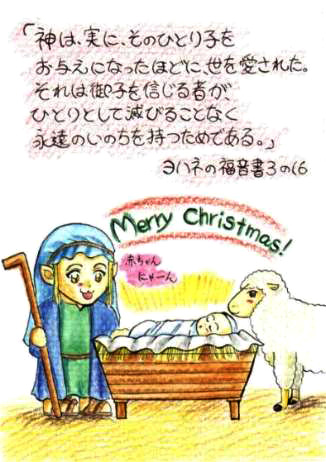 「神は、実に、そのひとり子を
お与えになったほどに、世を愛された。
それは御子を信じる者が、
ひとりとして滅びることなく
永遠のいのちを持つためである。」
ヨハネの福音書3の16
Merry Christmas!
赤ちゃん
にゃーん